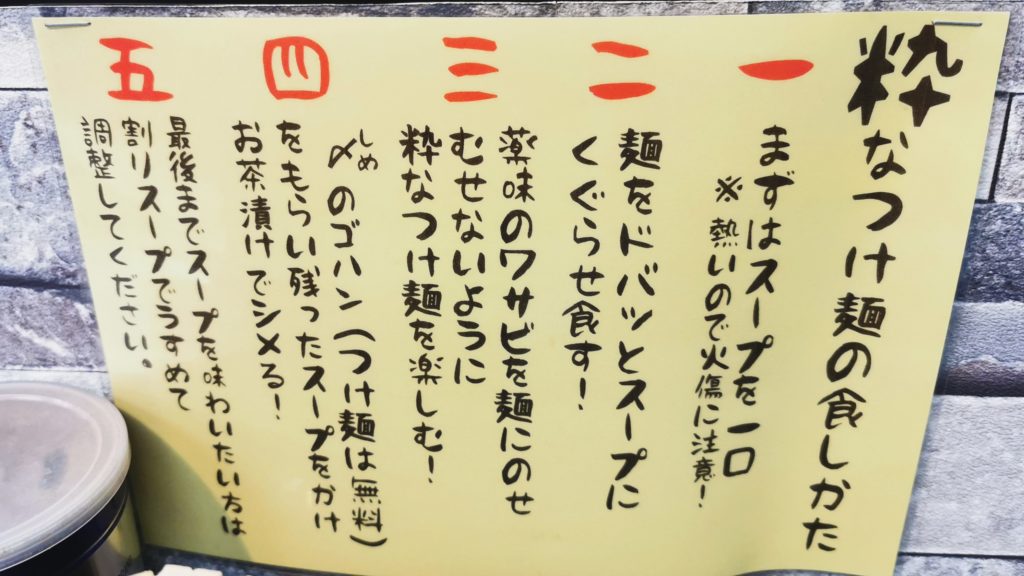 粋なつけ麺の食しかた
一
まずはスープを一口
※熱いので火傷に注意!
二
麺をドバッとスープに
くぐらせ食す!
三
薬味のワサビを麺にのせ
むせないように
粋なつけ麺を楽しむ!
四
しめ
〆のゴハン(つけ麺は無料)
をもらい残ったスープをかけ
お茶漬けでシメる!
五
最後までスープを味わいたい方は
割りスープでうすめて
調整してください。